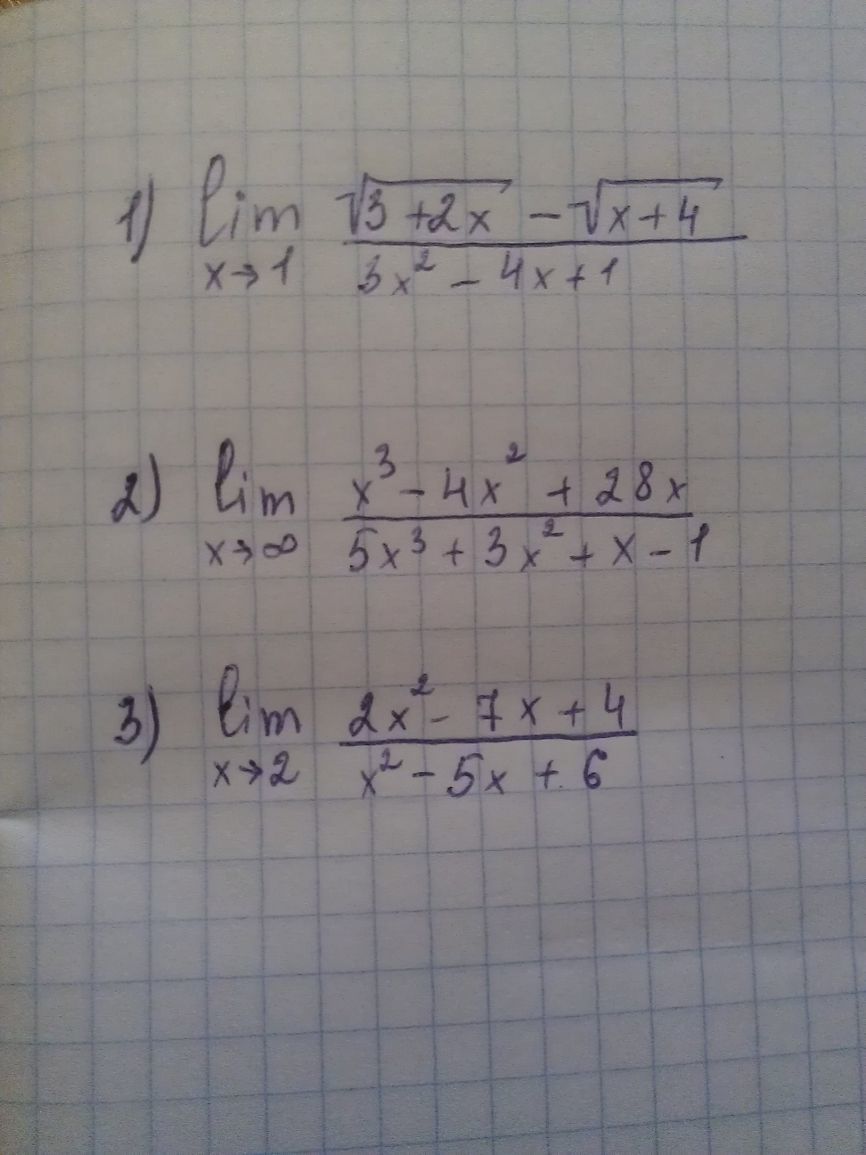 1) lim x→1 (√(3+2x) - √(x+4)) / (3x² - 4x + 1)
2) lim x→∞ (x³ - 4x² + 28x) / (5x³ + 3x² + x - 1)
3) lim x→2 (2x² - 7x + 4) / (x² - 5x + 6)